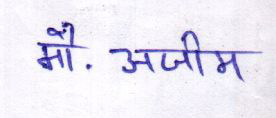 मौ. अजीम